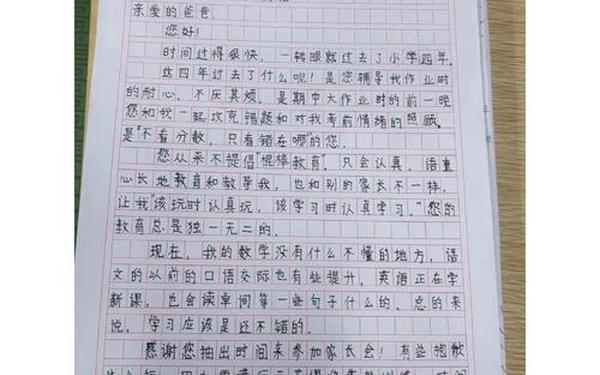 亲爱的爸爸
您好!
时间过得很快,一转眼就过去了小学四年。
这四年过去了什么呢!是您辅导我作业时
的耐心,不厌其烦,是期中大作业时的前一晚
您和我一起攻克错题和对我考前情绪的照顾,
是“不看分数,只看错在哪”的您。
您从来不提倡“棍棒教育”,只会认真、语重
心长地教育和教导我,也和别的家长不一样,
让我“该玩时认真玩,该学习时认真学习。”您的
教育总是独一无二的。
现在,我的数学没有什么不懂的地方,语
文的以前的口语交际也有些提升,英语正在学
新课,也会读单词等一些句子什么的。总的来
说,学习应该是还不错的。
感谢您抽出时间来参加家长会!有些抱歉